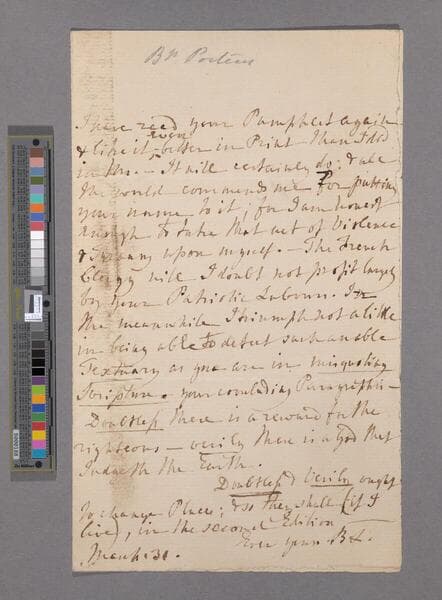 Bp Porteus
I have read your Pamphlet again
& like it even better in Print than I did
in Ms. – It will certainly do; & all
the world commends me for putting
your name to it; for I am honest
enough to take that act of Violence
& Tyranny upon myself. – The French
Clergy will I doubt not profit largely
by your Patriotic Labours. In
the meanwhile I triumph not a little
in being able to detect such an able
Textuary as you are in misquoting
Scripture. your concluding Paragraph –
Doubtless there is a reward for the
righteous – verily there is a God that
Judgeth the Earth.
Doubtless & Verily ought
to change Places; & so they shall (if I
live), in the second Edition
Ever yours
March 31.